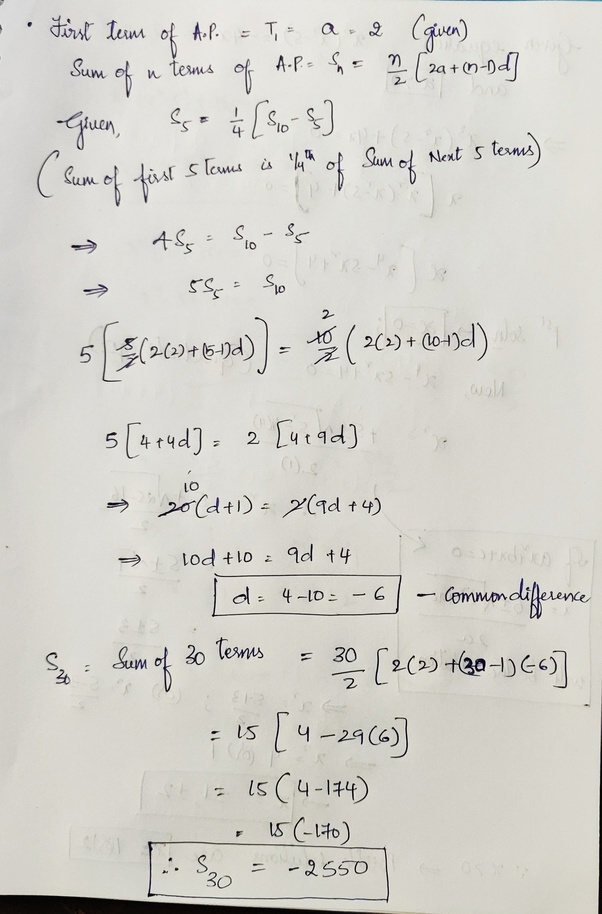 • First term of A.P. = T₁ = a = 2 (given)
Sum of n terms of A.P. = Sₙ = n/2 [2a + (n-1)d]
Given, S₅ = 1/4 [S₁₀ - S₅]
(Sum of first 5 terms is 1/4th of Sum of Next 5 terms)
⇒ 4S₅ = S₁₀ - S₅
⇒ 5S₅ = S₁₀
5 [5/2 (2(2) + (5-1)d)] = 2 10/2 (2(2) + (10-1)d)
5 [4 + 4d] = 2 [4 + 9d]
10
⇒ 20(d+1) = 2(9d + 4)
⇒ 10d + 10 = 9d + 4
d = 4 - 10 = - 6 - Common difference
S₃₀ = Sum of 30 terms = 30/2 [2(2) + (30-1)(-6)]
= 15 [4 - 29(6)]
= 15 (4 - 174)
= 15 (-170)
∴ S₃₀ = -2550